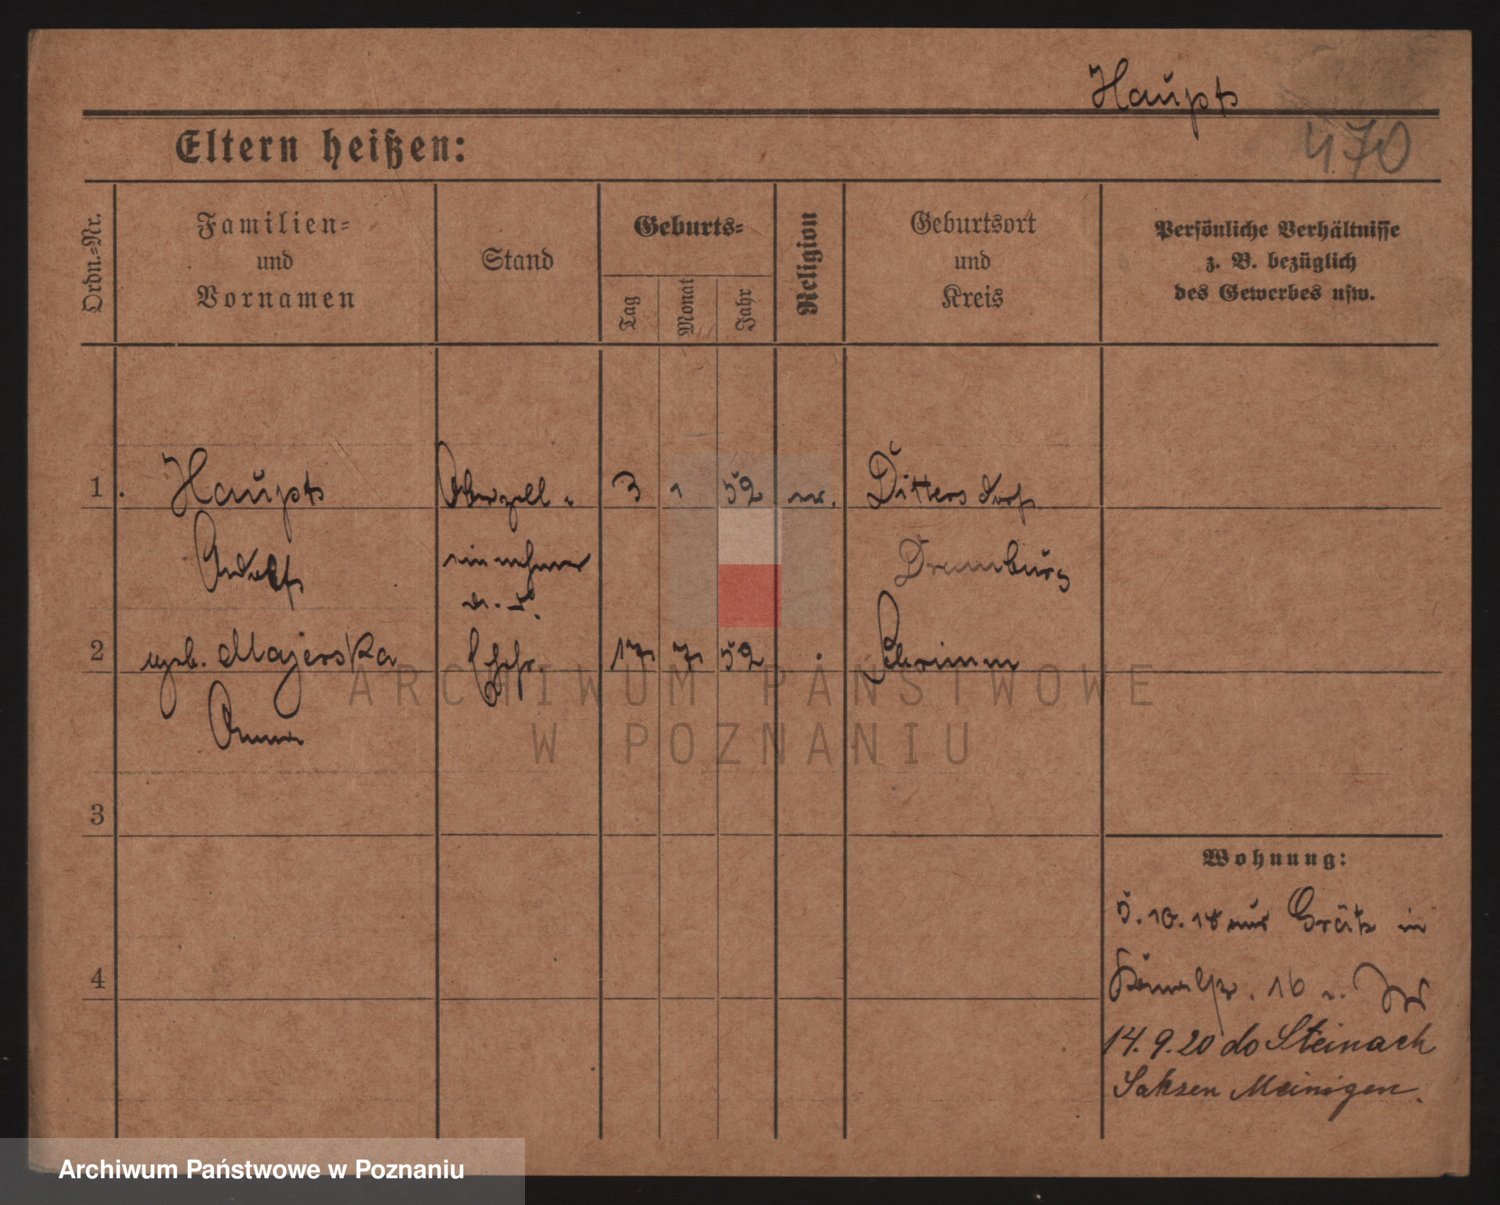 Haupt
Eltern heißen:
470
Ordn.-Nr.
Familien-
und
Vornamen
Stand
Geburts-
Tag
Monat
Jahr
Religion
Geburtsort
und
Kreis
Persönliche Verhältnisse
z. B. bezüglich
des Gewerbes usw.
1. Haupt Oberzoll- 3 1 52 Dittersdorf
Adolf einnehmer Dramburg
a. D.
2 geb. Majerska Ehefr. 17 7 52 Schrimm
Anna
ARCHIWUM PAŃSTWOWE
W POZNANIU
3
4
Wohnung:
5.10.18 aus Grätz in
16
14.9.20 do Steinach
Saksen Meinigen.
Archiwum Państwowe w Poznaniu